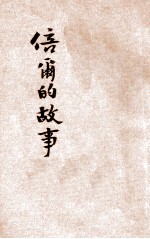 倍爾的故事